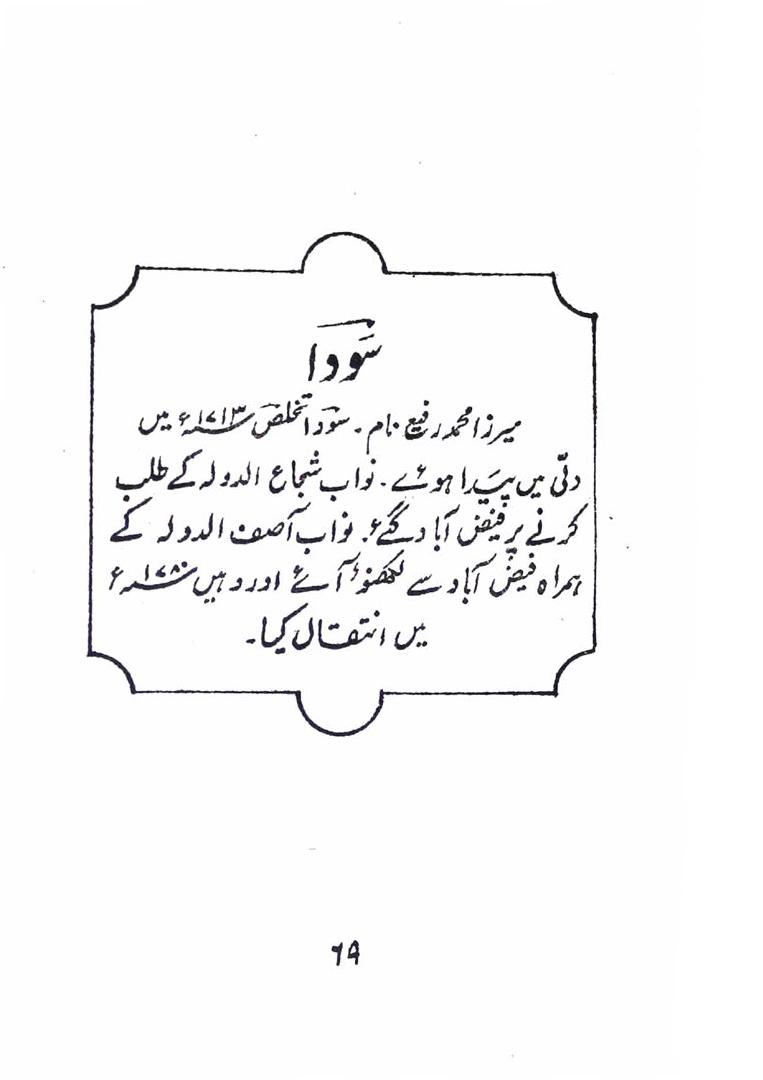 سَودا
میرزا محمد رفیع نام۔ سودا تخلص ۱۷۱۳ء میں
دلّی میں پَیدا ہوئے۔ نواب شجاع الدولہ کے طلب
کرنے پر فیض آباد گئے۔ نواب آصف الدولہ کے
ہمراہ فیض آباد سے لکھنؤ آئے اور وہیں ۱۷۸۰ء
میں انتقال کیا۔
۶۹